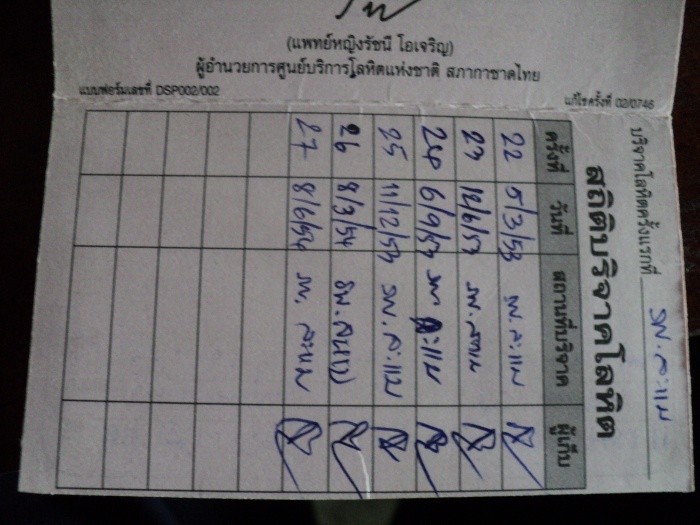 (แพทย์หญิงรัชนี โอเจริญ)
ผู้อำนวยการศูนย์บริการโลหิตแห่งชาติ สภากาชาดไทย
แบบฟอร์มเลขที่ DSP002/002
แก้ไขครั้งที่ 02/0746
บริจาคโลหิตครั้งแรกที่ รพ.ละแม
สถิติบริจาคโลหิต
ครั้งที่ วันที่ สถานที่บริจาค ผู้เก็บ
22 5/3/53 รพ.ละแม
23 12/6/53 รพ.
24 6/9/53 รพ ละแม
25 11/12/53 รพ.ละแม
26 8/3/54 รพ.
27 8/6/54 รพ. ละแม